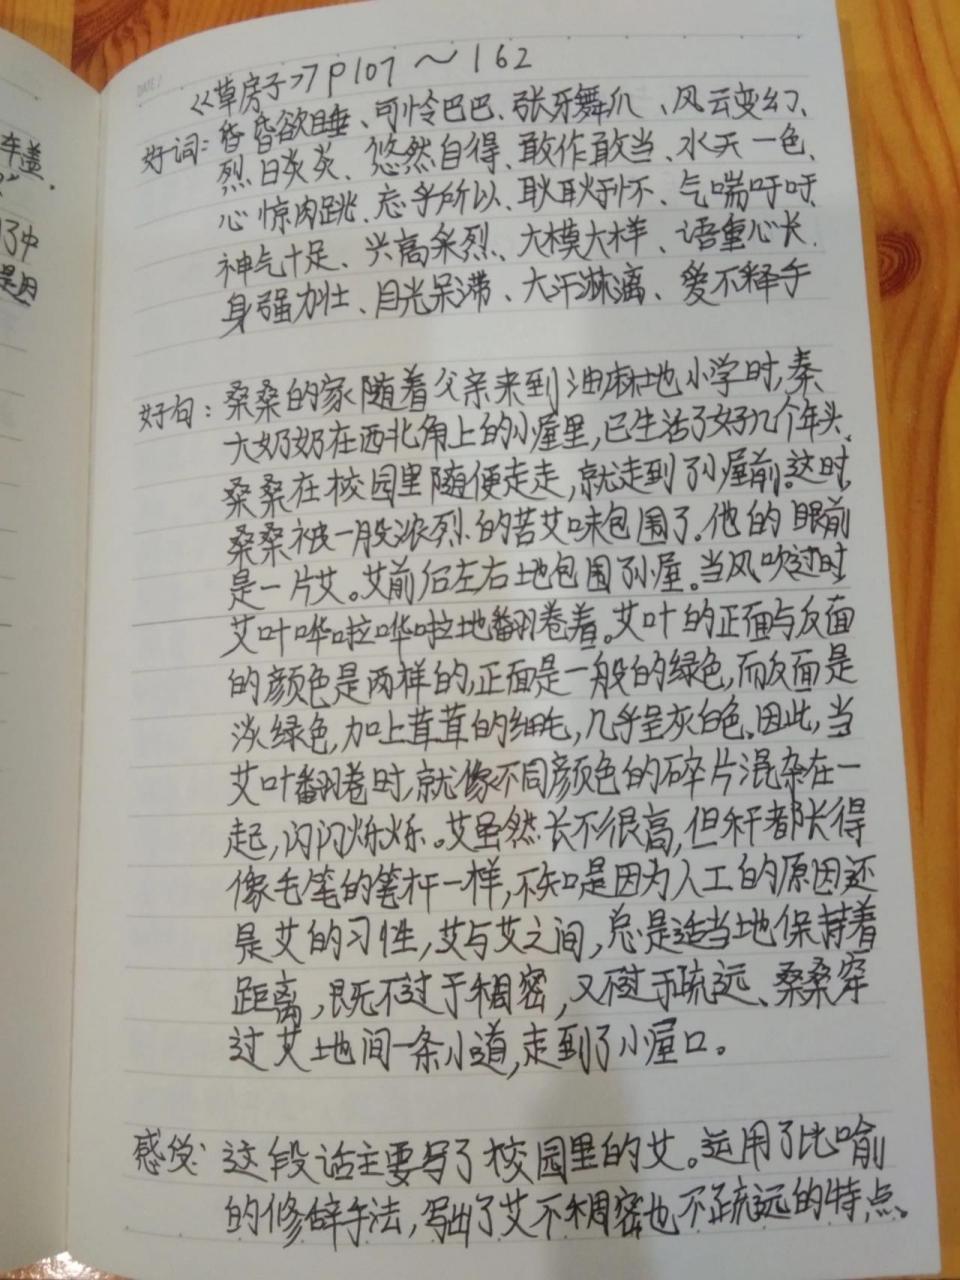 车盖.
了中
是因
DATE /
《草房子》P107～162
好词：昏昏欲睡、可怜巴巴、张牙舞爪、风云变幻、
烈日炎炎、悠然自得、敢作敢当、水天一色、
心惊肉跳、忘乎所以、耿耿于怀、气喘吁吁、
神气十足、兴高采烈、大模大样、语重心长、
身强力壮、目光呆滞、大汗淋漓、爱不释手
好句：桑桑的家随着父亲来到油麻地小学时,秦
大奶奶在西北角上的小屋里,已生活了好几个年头。
桑桑在校园里随便走走,就走到了小屋前。这时,
桑桑被一股浓烈的苦艾味包围了。他的眼前
是一片艾。艾前后左右地包围了小屋。当风吹过时
艾叶哗啦哗啦地翻卷着。艾叶的正面与反面
的颜色是两样的,正面是一般的绿色,而反面是
淡绿色,加上茸茸的细毛,几乎呈灰白色。因此,当
艾叶翻卷时,就像不同颜色的碎片混杂在一
起,闪闪烁烁。艾虽然长不很高,但杆都长得
像毛笔的笔杆一样,不知是因为人工的原因还
是艾的习性,艾与艾之间,总是适当地保持着
距离,既不过于稠密,又不过于疏远、桑桑穿
过艾地间一条小道,走到了小屋口。
感觉：这段话主要写了校园里的艾。运用了比喻
的修辞手法,写出了艾不稠密也不疏远的特点。